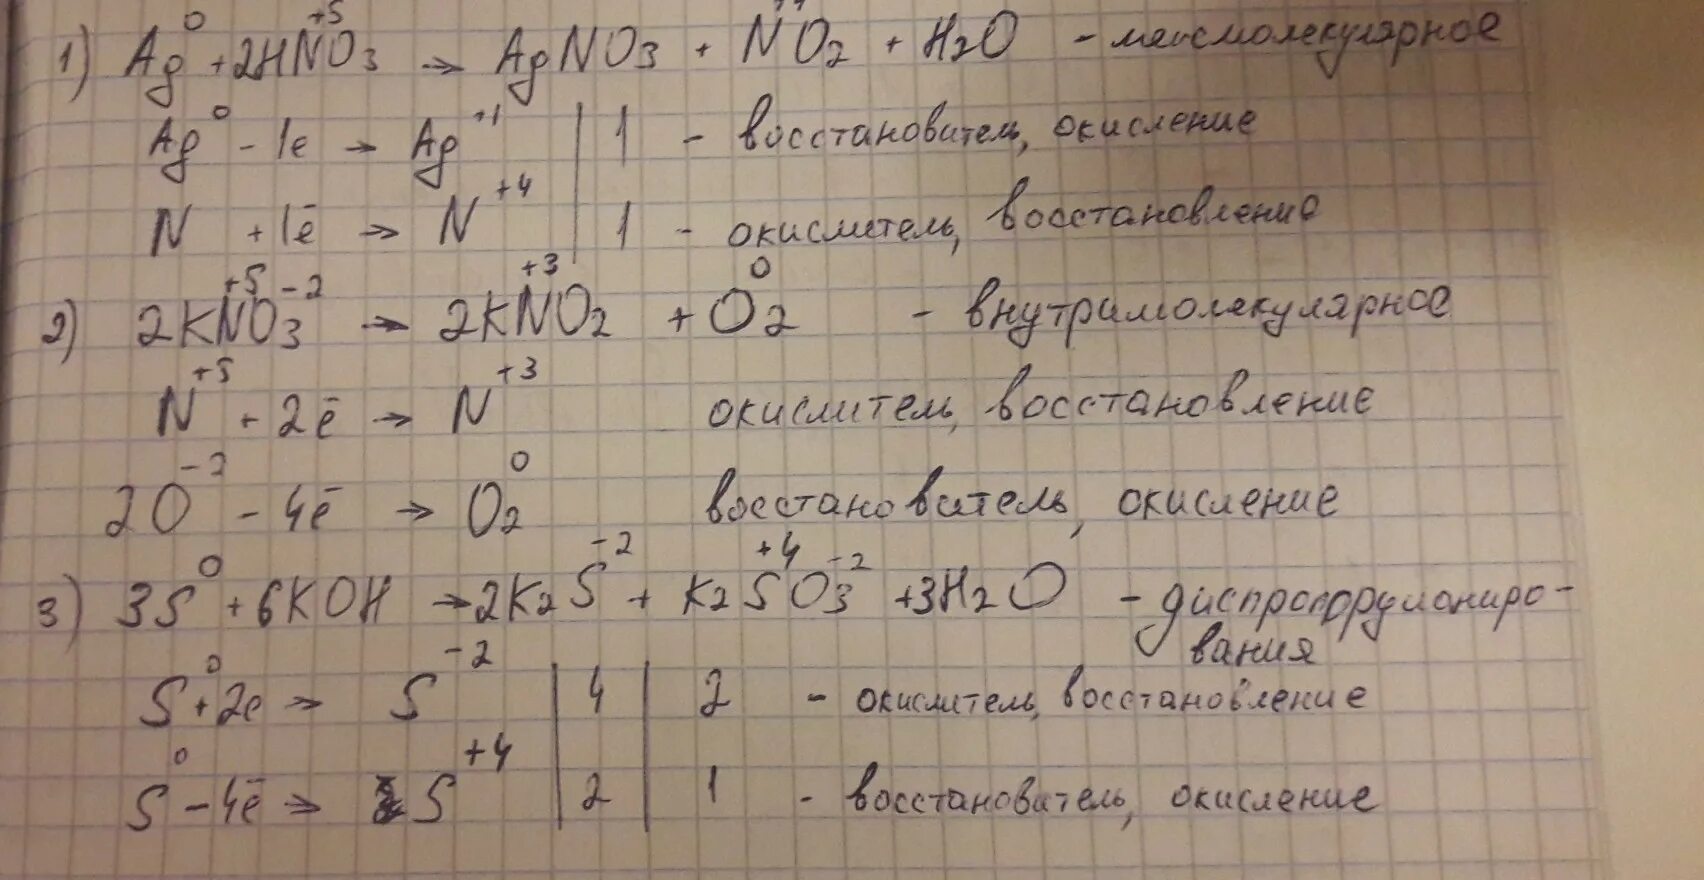 1) Ag⁰ + 2HN⁺⁵O3 → AgNO3 + N⁺⁴O2 + H2O - межмолекулярное
Ag⁰ - 1e → Ag⁺¹ | 1 - восстановитель, окисление
N + 1ē → N⁺⁴ | 1 - окислитель, восстановление
2) 2KN⁺⁵O3⁻² → 2KN⁺³O2 + O2⁰ - внутримолекулярное
N⁺⁵ + 2ē → N⁺³ окислитель, восстановление
2O⁻² - 4ē → O2⁰ восстановитель, окисление
3) 3S⁰ + 6KOH → 2K2S⁻² + K2S⁺⁴O3⁻² + 3H2O - диспропорциониро-
вания
S⁰ + 2e → S⁻² | 4 | 2 - окислитель, восстановление
S⁰ - 4ē → S⁺⁴ | 2 | 1 - восстановитель, окисление